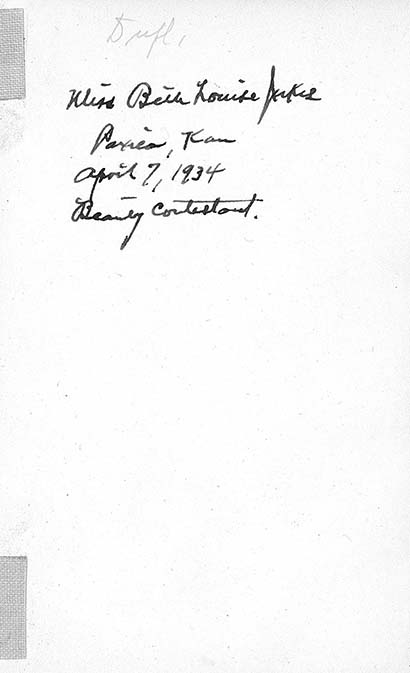 Dupl.
Miss Beth Louise
Paxico, Kan
April 7, 1934
Beauty Contestant.